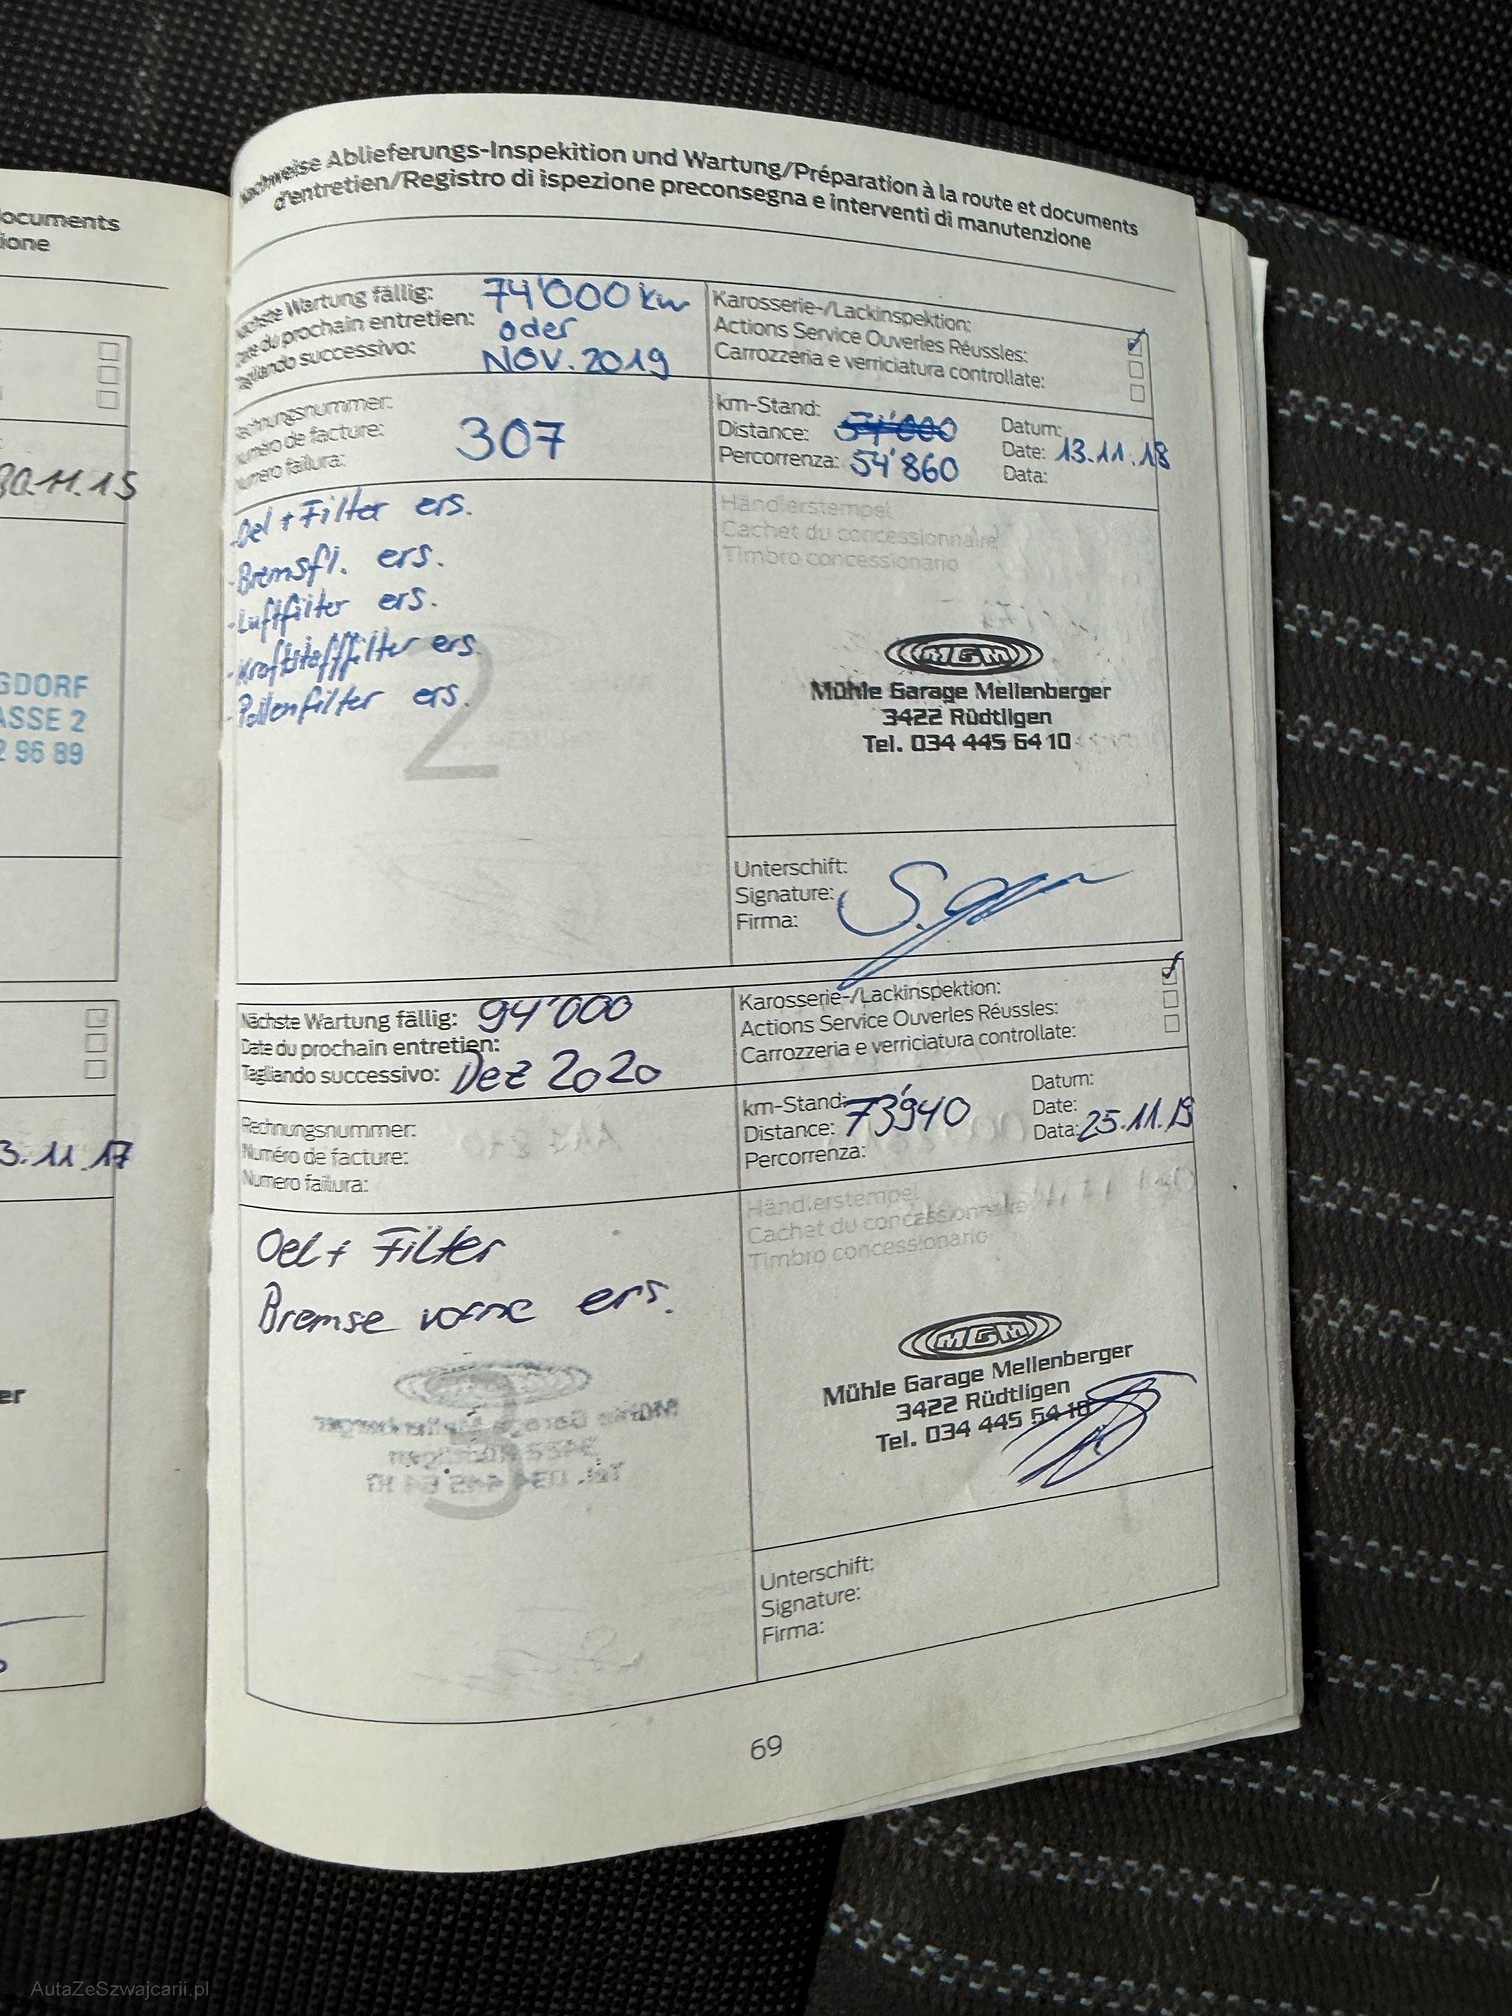 documents
zione
30.11.15
GDORF
ASSE 2
2 96 89
3.11.17
er
Nachweise Ablieferungs-Inspekition und Wartung/Préparation à la route et documents
d'entretien/Registro di ispezione preconsegna e interventi di manutenzione
Nächste Wartung fällig: 74'000 km
Date du prochain entretien: oder
Tagliando successivo: NOV. 2019
Karosserie-/Lackinspektion:
Actions Service Ouverles Réussles:
Carrozzeria e verriciatura controllate:
Rechnungsnummer:
Numéro de facture: 307
Numero failura:
km-Stand: 54'000
Distance:
Percorrenza: 54'860
Datum:
Date: 13.11.18
Data:
- Oel + Filter ers.
- Bremsfl. ers.
- Luftfilter ers.
- Kraftstofffilter ers.
- Pollenfilter ers.
2
Händlerstempel
Cachet du concessionnaire
Timbro concessionario
MGM
Mühle Garage Mellenberger
3422 Rüdtligen
Tel. 034 445 64 10
Unterschift:
Signature:
Firma:
Nächste Wartung fällig: 94'000
Date du prochain entretien:
Tagliando successivo: Dez 2020
Karosserie-/Lackinspektion:
Actions Service Ouverles Réussles:
Carrozzeria e verriciatura controllate:
Rechnungsnummer:
Numéro de facture:
Numero failura:
km-Stand: 73'940
Distance:
Percorrenza:
Datum:
Date:
Data: 25.11.19
Oel + Filter
Bremse vorne ers.
3
Händlerstempel
Cachet du concessionnaire
Timbro concessionario
MGM
Mühle Garage Mellenberger
3422 Rüdtligen
Tel. 034 445 64 10
Unterschift:
Signature:
Firma:
69
AutaZeSzwajcarii.pl